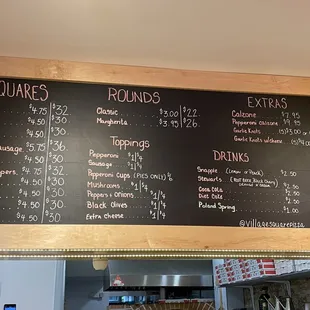 QUARES
$4.75 $32
$4.50 $30
$4.50 $30
$5.75 $36
$4.50 $30
$5.75 $36
$4.50 $30
$4.50 $30
$4.50 $30
$4.50 $30
ROUNDS
Classic $3.00 $22
Margherita $3.95 $26
Toppings
Pepperoni $1/4
Sausage $1/4
Pepperoni cups (pies only) $/4
Mushrooms $1/4
Peppers + onions $1/4
Black olives $1/4
extra cheese $1/4
EXTRAS
Calzone $7.95
Pepperoni calzone $9.95
Garlic Knots (5)$3.00
Garlic Knots (5)$4.00
DRINKS
Snapple (Lemon or Peach) $2.50
Stewarts (Root Beer, Black Cherry) $2.50
Coca Cola $2.50
Diet Coke $2.50
Poland Spring $1.00
@villagesquarepizza